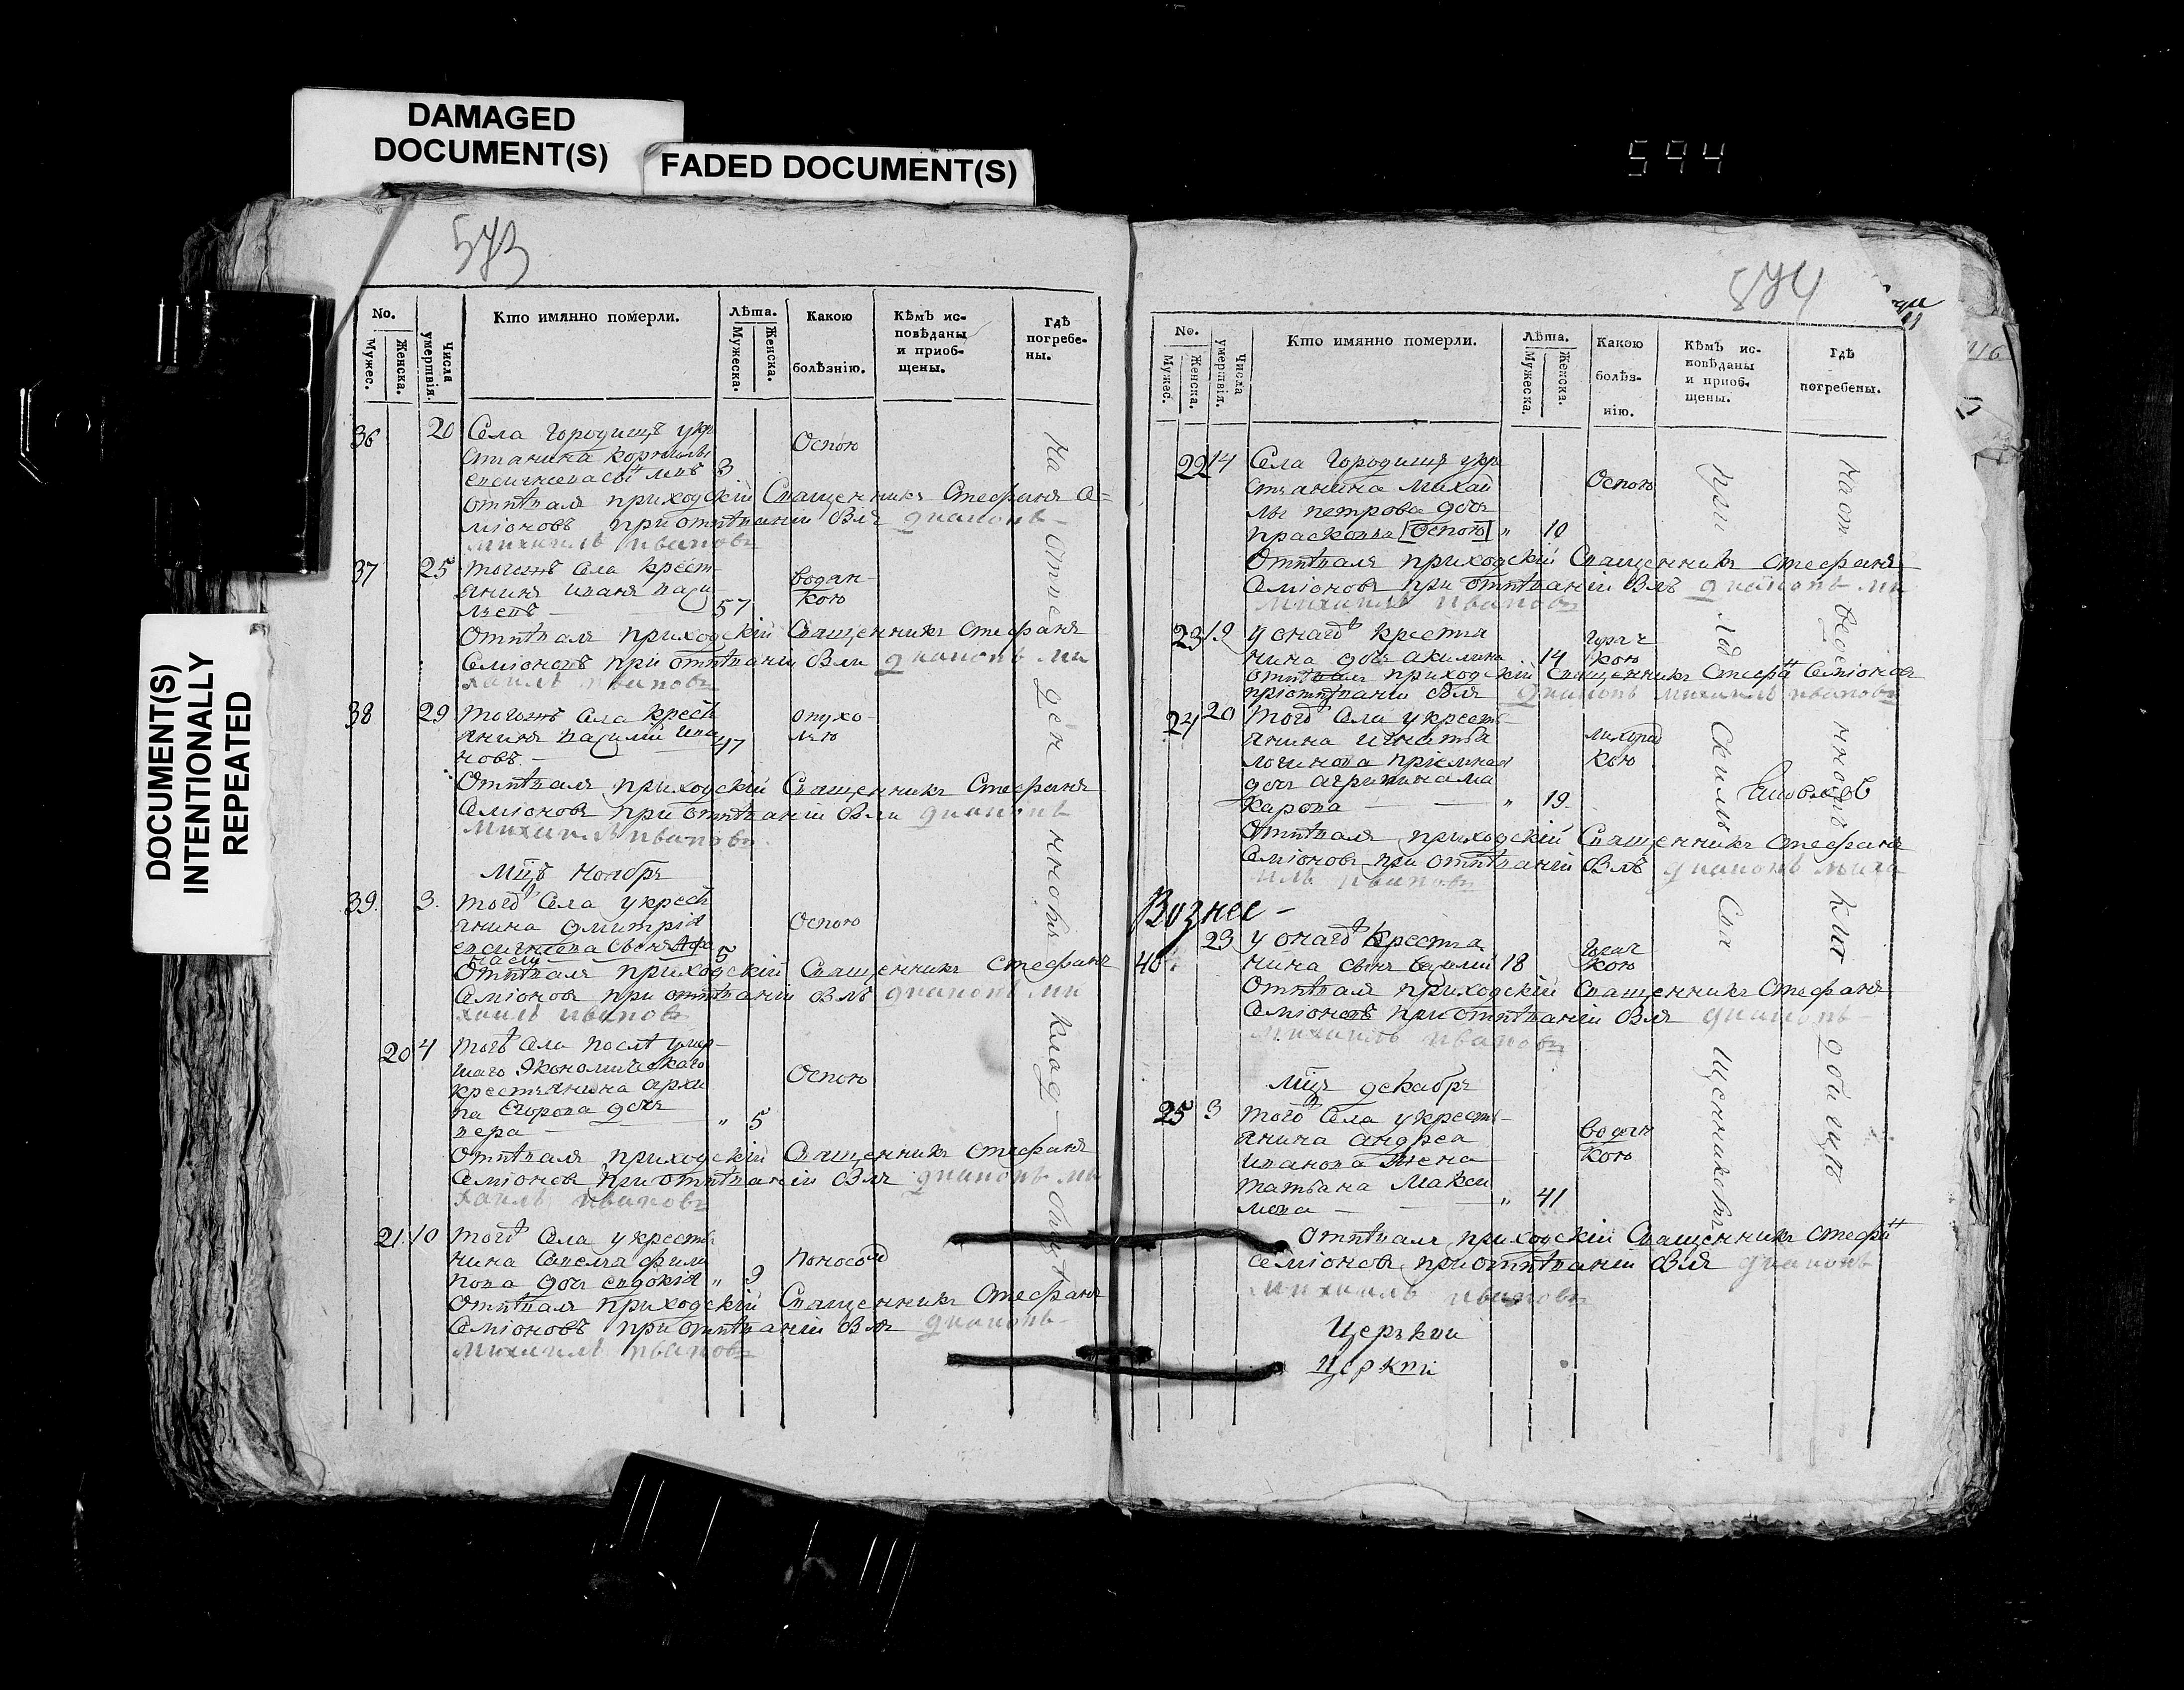 DAMAGED
DOCUMENT(S)
FADED DOCUMENT(S)
DOCUMENT(S)
INTENTIONALLY
REPEATED
594
573
No.
Мужес.
Женска.
Числа умертвія.
Кто имянно померли.
Лѣта.
Мужеска.
Женска.
Какою
болѣзнію.
Кѣмъ ис-
повѣданы
и приоб-
щены.
Гдѣ
погребе-
ны.
36 20 Села Городищъ укр
стянина Корнилы
3
Оспою
отпѣвалъ приходскій Священникъ Стефанъ Се=
міоновъ при отпѣваніи былъ диаконъ
михаилъ ивановъ
37 25 тогожъ села крест
янинъ иванъ васи
льевъ 57
водян
кою
Отпѣвалъ приходскій Священникъ Стефанъ
Семіоновъ при отпѣваніи былъ диаконъ ми
хаилъ ивановъ
38 29 тогожъ села крест
янинъ василій ива
новъ 47
опухо
лью
Отпѣвалъ приходскій Священникъ Стефанъ
Семіоновъ при отпѣваніи былъ диаконъ
михаилъ ивановъ
Мцъ Ноября
39. 3. того села укрест
янина димитрія
5
Оспою
Отпѣвалъ приходскій Священникъ Стефанъ
Семіоновъ при отпѣваніи былъ диаконъ ми
хаилъ ивановъ
20 4 того села после умер
шаго Экономическаго
крестьянина архи
па Егорова дочь
вера „ 5
Оспою
Отпѣвалъ приходскій Священникъ Стефанъ
Семіоновъ при отпѣваніи былъ диаконъ ми
хаилъ ивановъ
21. 10 того села укресть
нина Савелья фили
пова дочь евдокія „ 9
поносом
Отпѣвалъ приходскій Священникъ Стефанъ
Семіоновъ при отпѣваніи былъ диаконъ
михаилъ ивановъ
574
No.
Мужес.
Женска.
Числа умертвія.
Кто имянно померли.
Лѣта.
Мужеска.
Женска.
Какою
болѣз-
нію.
Кѣмъ ис-
повѣданы
и приоб-
щены.
Гдѣ
погребены.
22 14 Села Городищъ укре
стьянина Михай
лы петрова дочь
прасковья [Оспою] „ 10
Оспою
Отпѣвалъ приходскій Священникъ Стефанъ
Семіоновъ при отпѣваніи былъ диаконъ ми
михаилъ ивановъ
23 19 у онаго крестья
нина дочь акилина 14
кою
отпѣвалъ приходскій Священникъ Стефа Семіоновъ
при отпѣваніи былъ диаконъ михаилъ ивановъ
24 20 того села укресть
янина игнатья
логинова пріемная
дочь агрипинама
карова „ 19.
лихорад
кою
Отпѣвалъ приходскій Священникъ Стефанъ
Семіоновъ при отпѣваніи былъ диаконъ миха
илъ ивановъ
Вознес-
40 23 у онаго крестья
нина сынъ василій 18
кою
Отпѣвалъ приходскій Священникъ Стефанъ
Семіоновъ при отпѣваніи былъ диаконъ
михаилъ ивановъ
Мцъ декабрь
25 3 того села укресть
янина андреа
иванова жена
татьана Макси
мова „ 41
водян
кою
Отпѣвалъ приходскій Священникъ Стефа
семіоновъ при отпѣваніи былъ диаконъ
михаилъ ивановъ
Церькви
Церкви